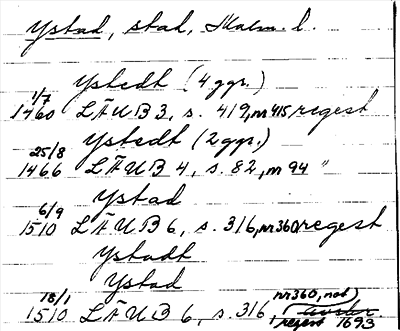 Ystad, stad, Malm. l.
Ystedt (4 ggr.)
1/7
1460 LÄUB 3, s. 419, nr 415 regest
Ystedt (2 ggr.)
25/8
1466 LÄUB 4, s. 82, nr 94 "
Ystad
6/9
1510 LÄUB 6, s. 316, nr 360 regest
Ystadt
Ystad
18/1 nr 360, not)
1510 LÄUB 6, s. 316, (
regest 1693